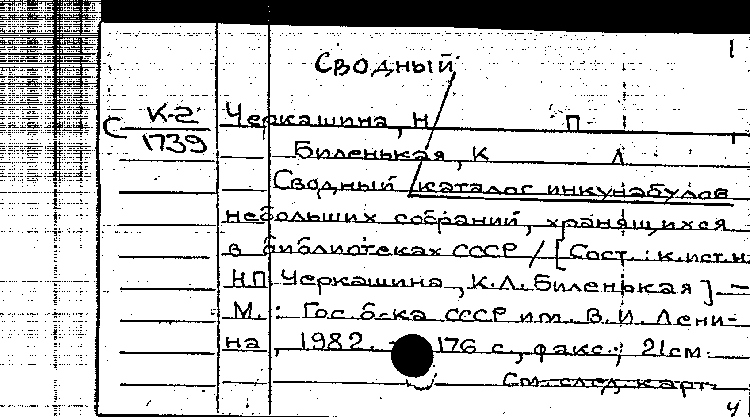 1
Сводный
С К-2
1739
Черкашина, Н П
Биленькая, К Л
Сводный каталог инкунабулов
небольших собраний, хранящихся
в библиотеках СССР / [Сост.: к.ист.н.
Н.П. Черкашина, К.Л. Биленькая]. –
М.: Гос. б-ка СССР им. В.И. Лени-
на, 1982. – 176 с., факс.; 21см.
См. след. карт.